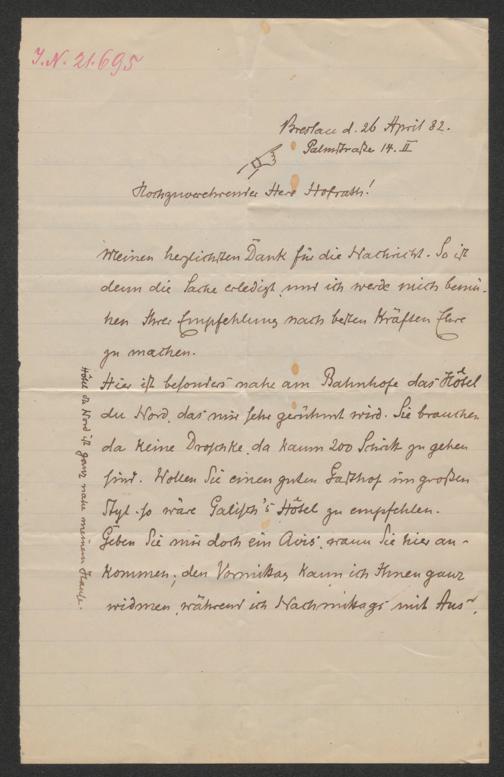 J.N. 21.695
Breslau d. 26 April 82.
Palmstraße 14. II
Hochzuverehrender Herr Hofrath!
Meinen herzlichsten Dank für die Nachricht. So ist
denn die Sache erledigt und ich werde mich bemü-
hen Ihrer Empfehlung nach besten Kräften Ehre
zu machen.
Hier ist besonders nahe am Bahnhofe das Hôtel
du Nord, das mir sehr gerühmt wird. Sie brauchen
da keine Droschke, da kaum 200 Schritt zu gehen
sind. Wollen Sie einen guten Gasthof im großen
Styl so wäre Galisch's Hôtel zu empfehlen.
Geben Sie mir doch ein Avis, wann Sie hier an-
kommen; den Vormittag kann ich Ihnen ganz
widmen, während ich Nachmittags mit Aus-
Hôtel du Nord ist ganz nahe meinem Hause.